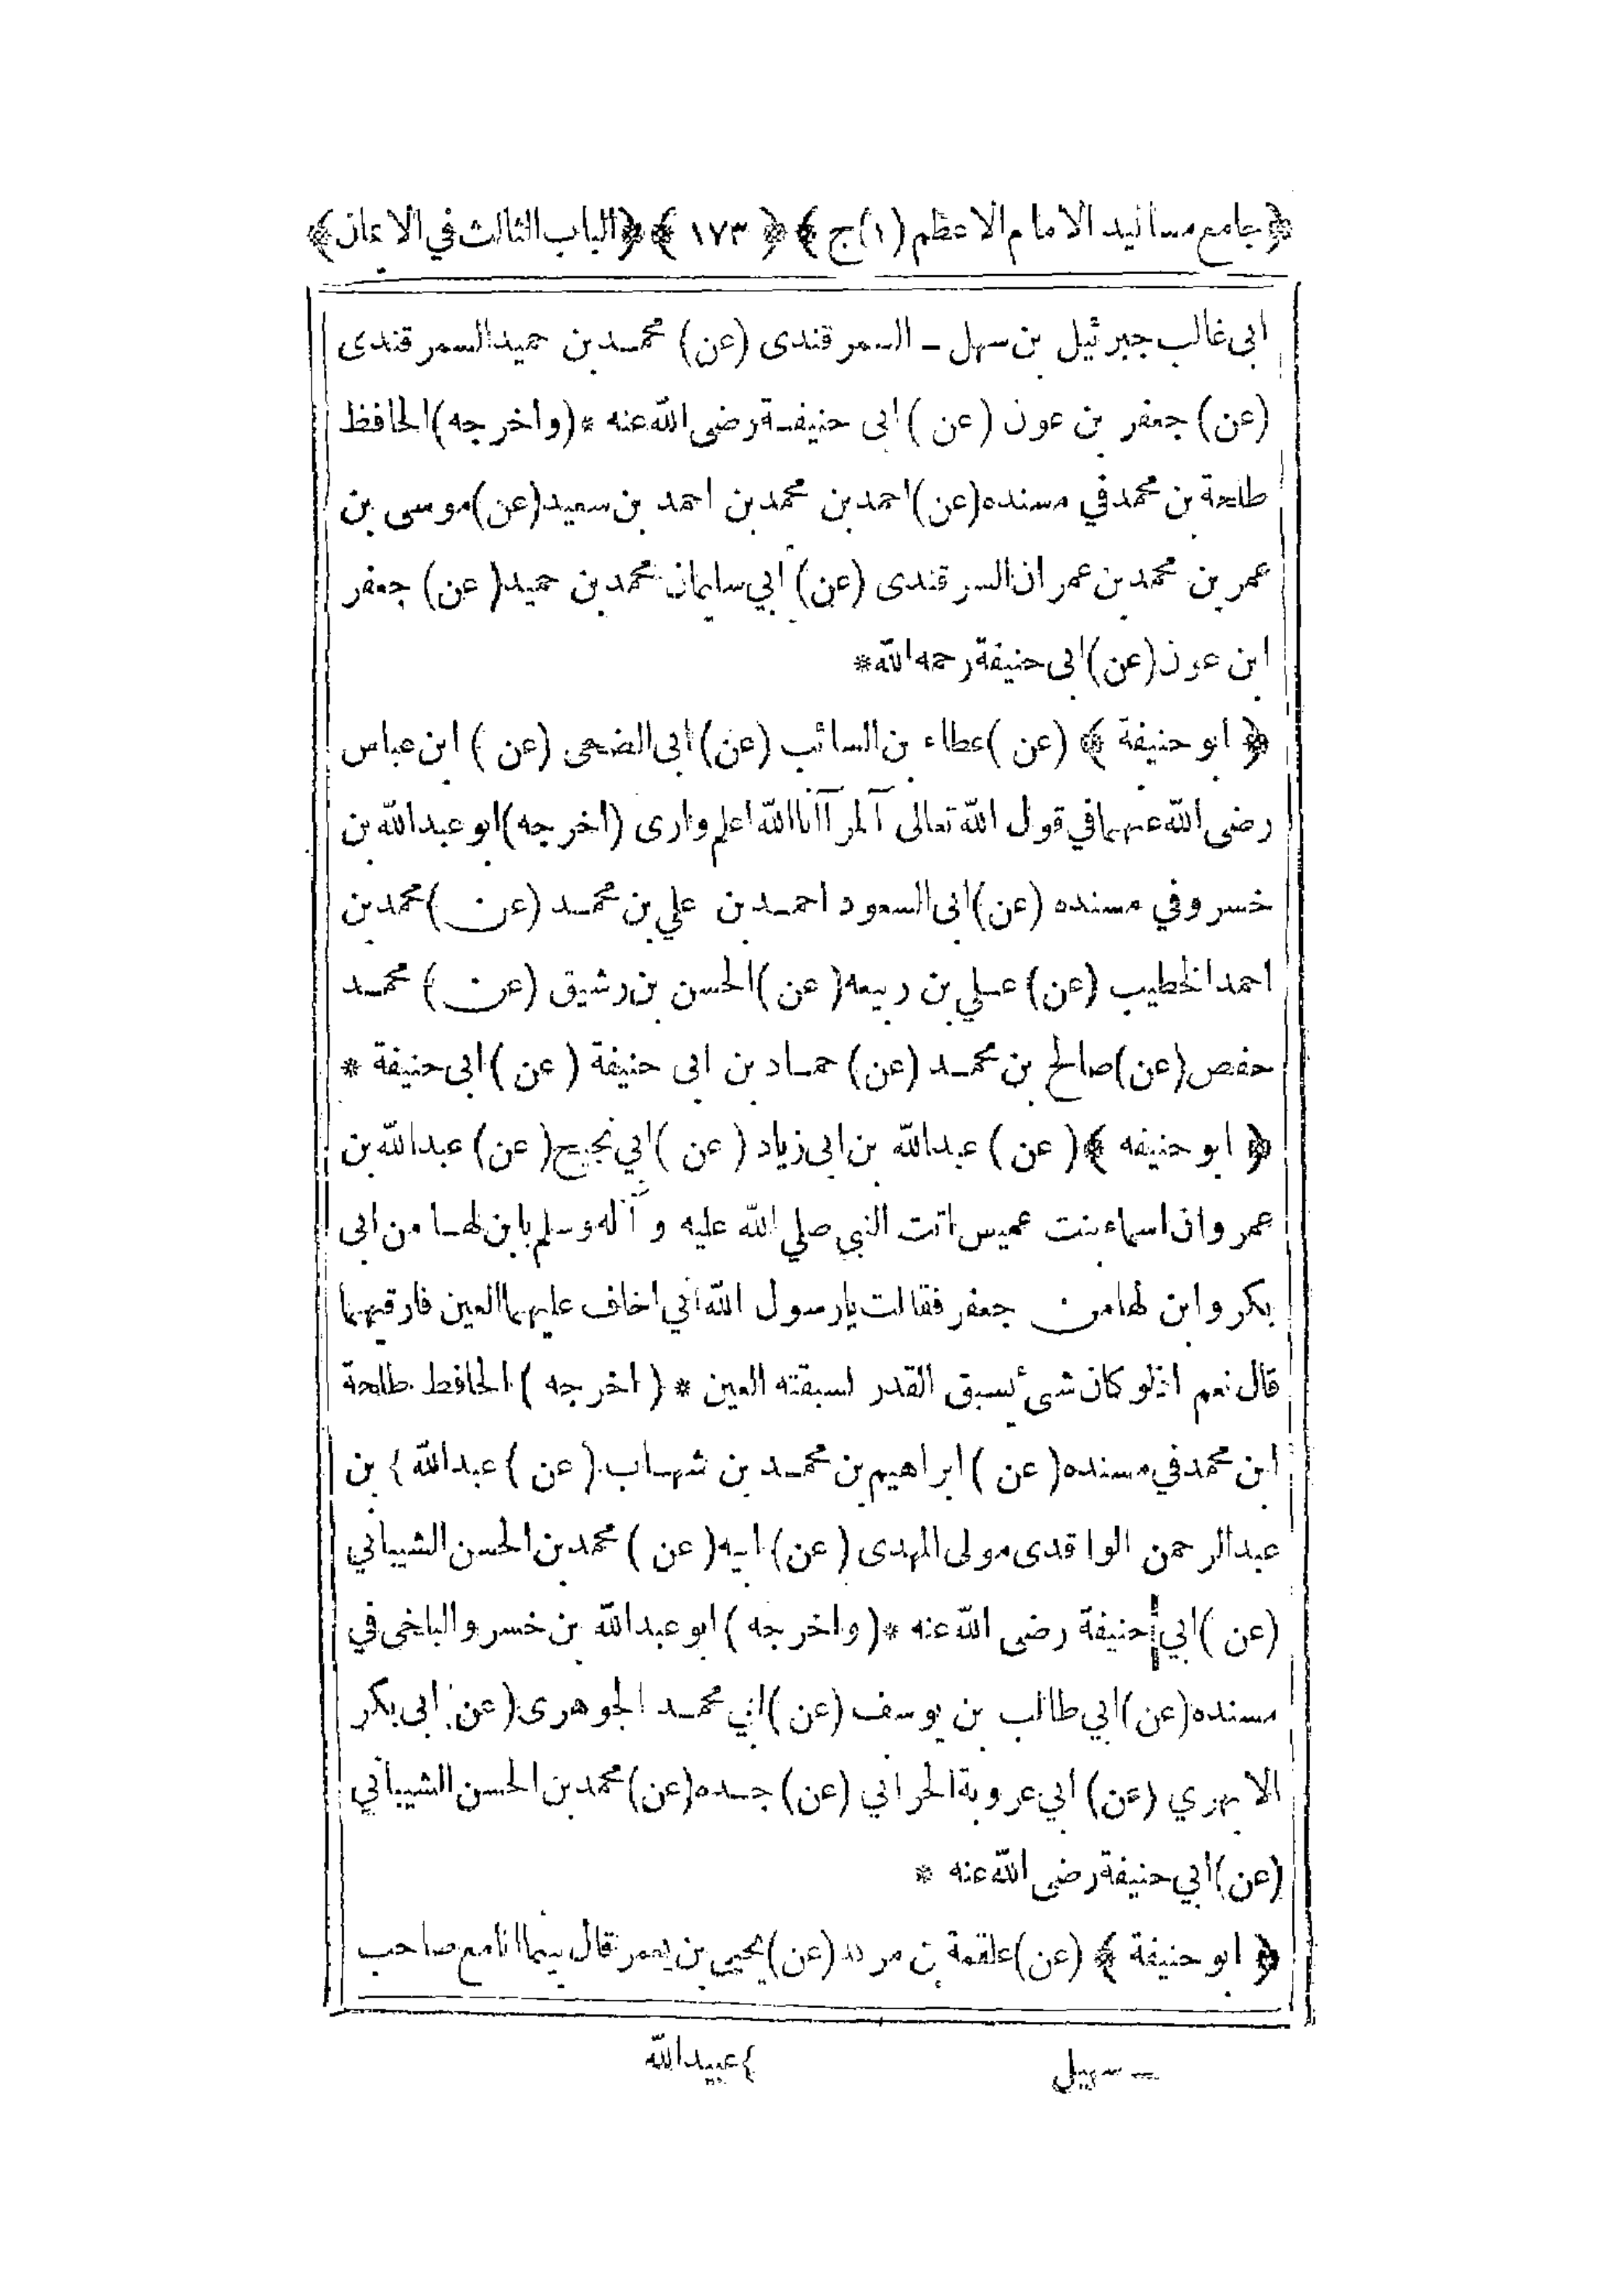 ﴿جامع مسانيد الامام الاعظم (١) ج﴾ ﴿ ١٧٣ ﴾ ﴿الباب الثالث في الايمان﴾
ابى غالب جبرئيل بن سهل ـ السمرقندى (عن) محمد بن حميد السمرقندى
(عن) جعفر بن عون (عن) ابى حنيفة رضى الله عنه *(واخرجه) الحافظ
طلحة بن محمد في مسنده (عن) احمد بن محمد بن احمد بن سعيد (عن) موسى بن
عمر بن محمد بن عمران السرقندى (عن) ابي سليمان محمد بن حميد (عن) جعفر
ابن عون (عن) ابى حنيفة رحمه الله*
﴿ ابو حنيفة ﴾ (عن) عطاء بن السائب (عن) ابى الضحى (عن) ابن عباس
رضى الله عنهما في قول الله تعالى آلمر آانا الله اعلم وارى (اخرجه) ابو عبد الله بن
خسرو في مسنده (عن) ابى السعود احمد بن علي بن محمد (عن) محمد بن
احمد الخطيب (عن) علي بن ربيعه (عن) الحسن بن رشيق (عن) محمد
حفص (عن) صالح بن محمد (عن) حماد بن ابى حنيفة (عن) ابى حنيفة *
﴿ ابو حنيفه ﴾ (عن) عبد الله بن ابى زياد (عن) ابي نجيح (عن) عبد الله بن
عمر وان اسماء بنت عميس اتت النبي صلي الله عليه و آله وسلم بابن لها من ابى
بكر وابن لها من جعفر فقالت يارسول الله اني اخاف عليهما العين فارقيهما
قال نعم اذلو كان شئ يسبق القدر لسبقته العين * (اخرجه) الحافظ طلحة
ابن محمد في مسنده (عن) ابراهيم بن محمد بن شهاب (عن) عبد الله } بن
عبد الرحمن الواقدى مولى المهدى (عن) ابيه (عن) محمد بن الحسن الشيباني
(عن) ابي حنيفة رضى الله عنه *(واخرجه) ابو عبد الله بن خسرو البلخى في
مسنده (عن) ابي طالب بن يوسف (عن) ابي محمد الجوهرى (عن) ابى بكر
الابهري (عن) ابي عروبة الحراني (عن) جده (عن) محمد بن الحسن الشيباني
(عن) ابي حنيفة رضى الله عنه *
﴿ ابو حنيفة ﴾ (عن) علقمة بن مرثد (عن) يحيى بن يعمر قال بينما انا مع صاحب
ـ سهيل
} عبيد الله